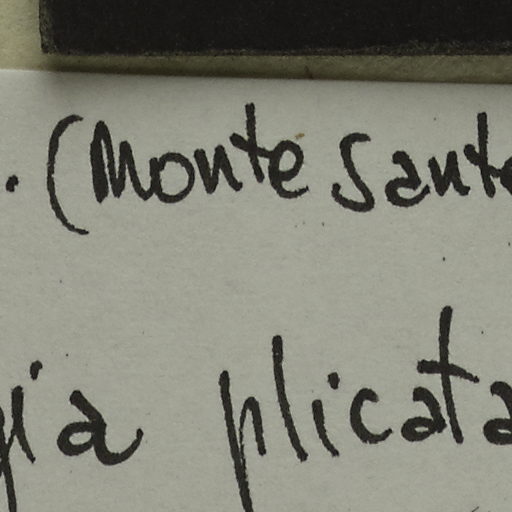 . (Monte Sant
gia plicata